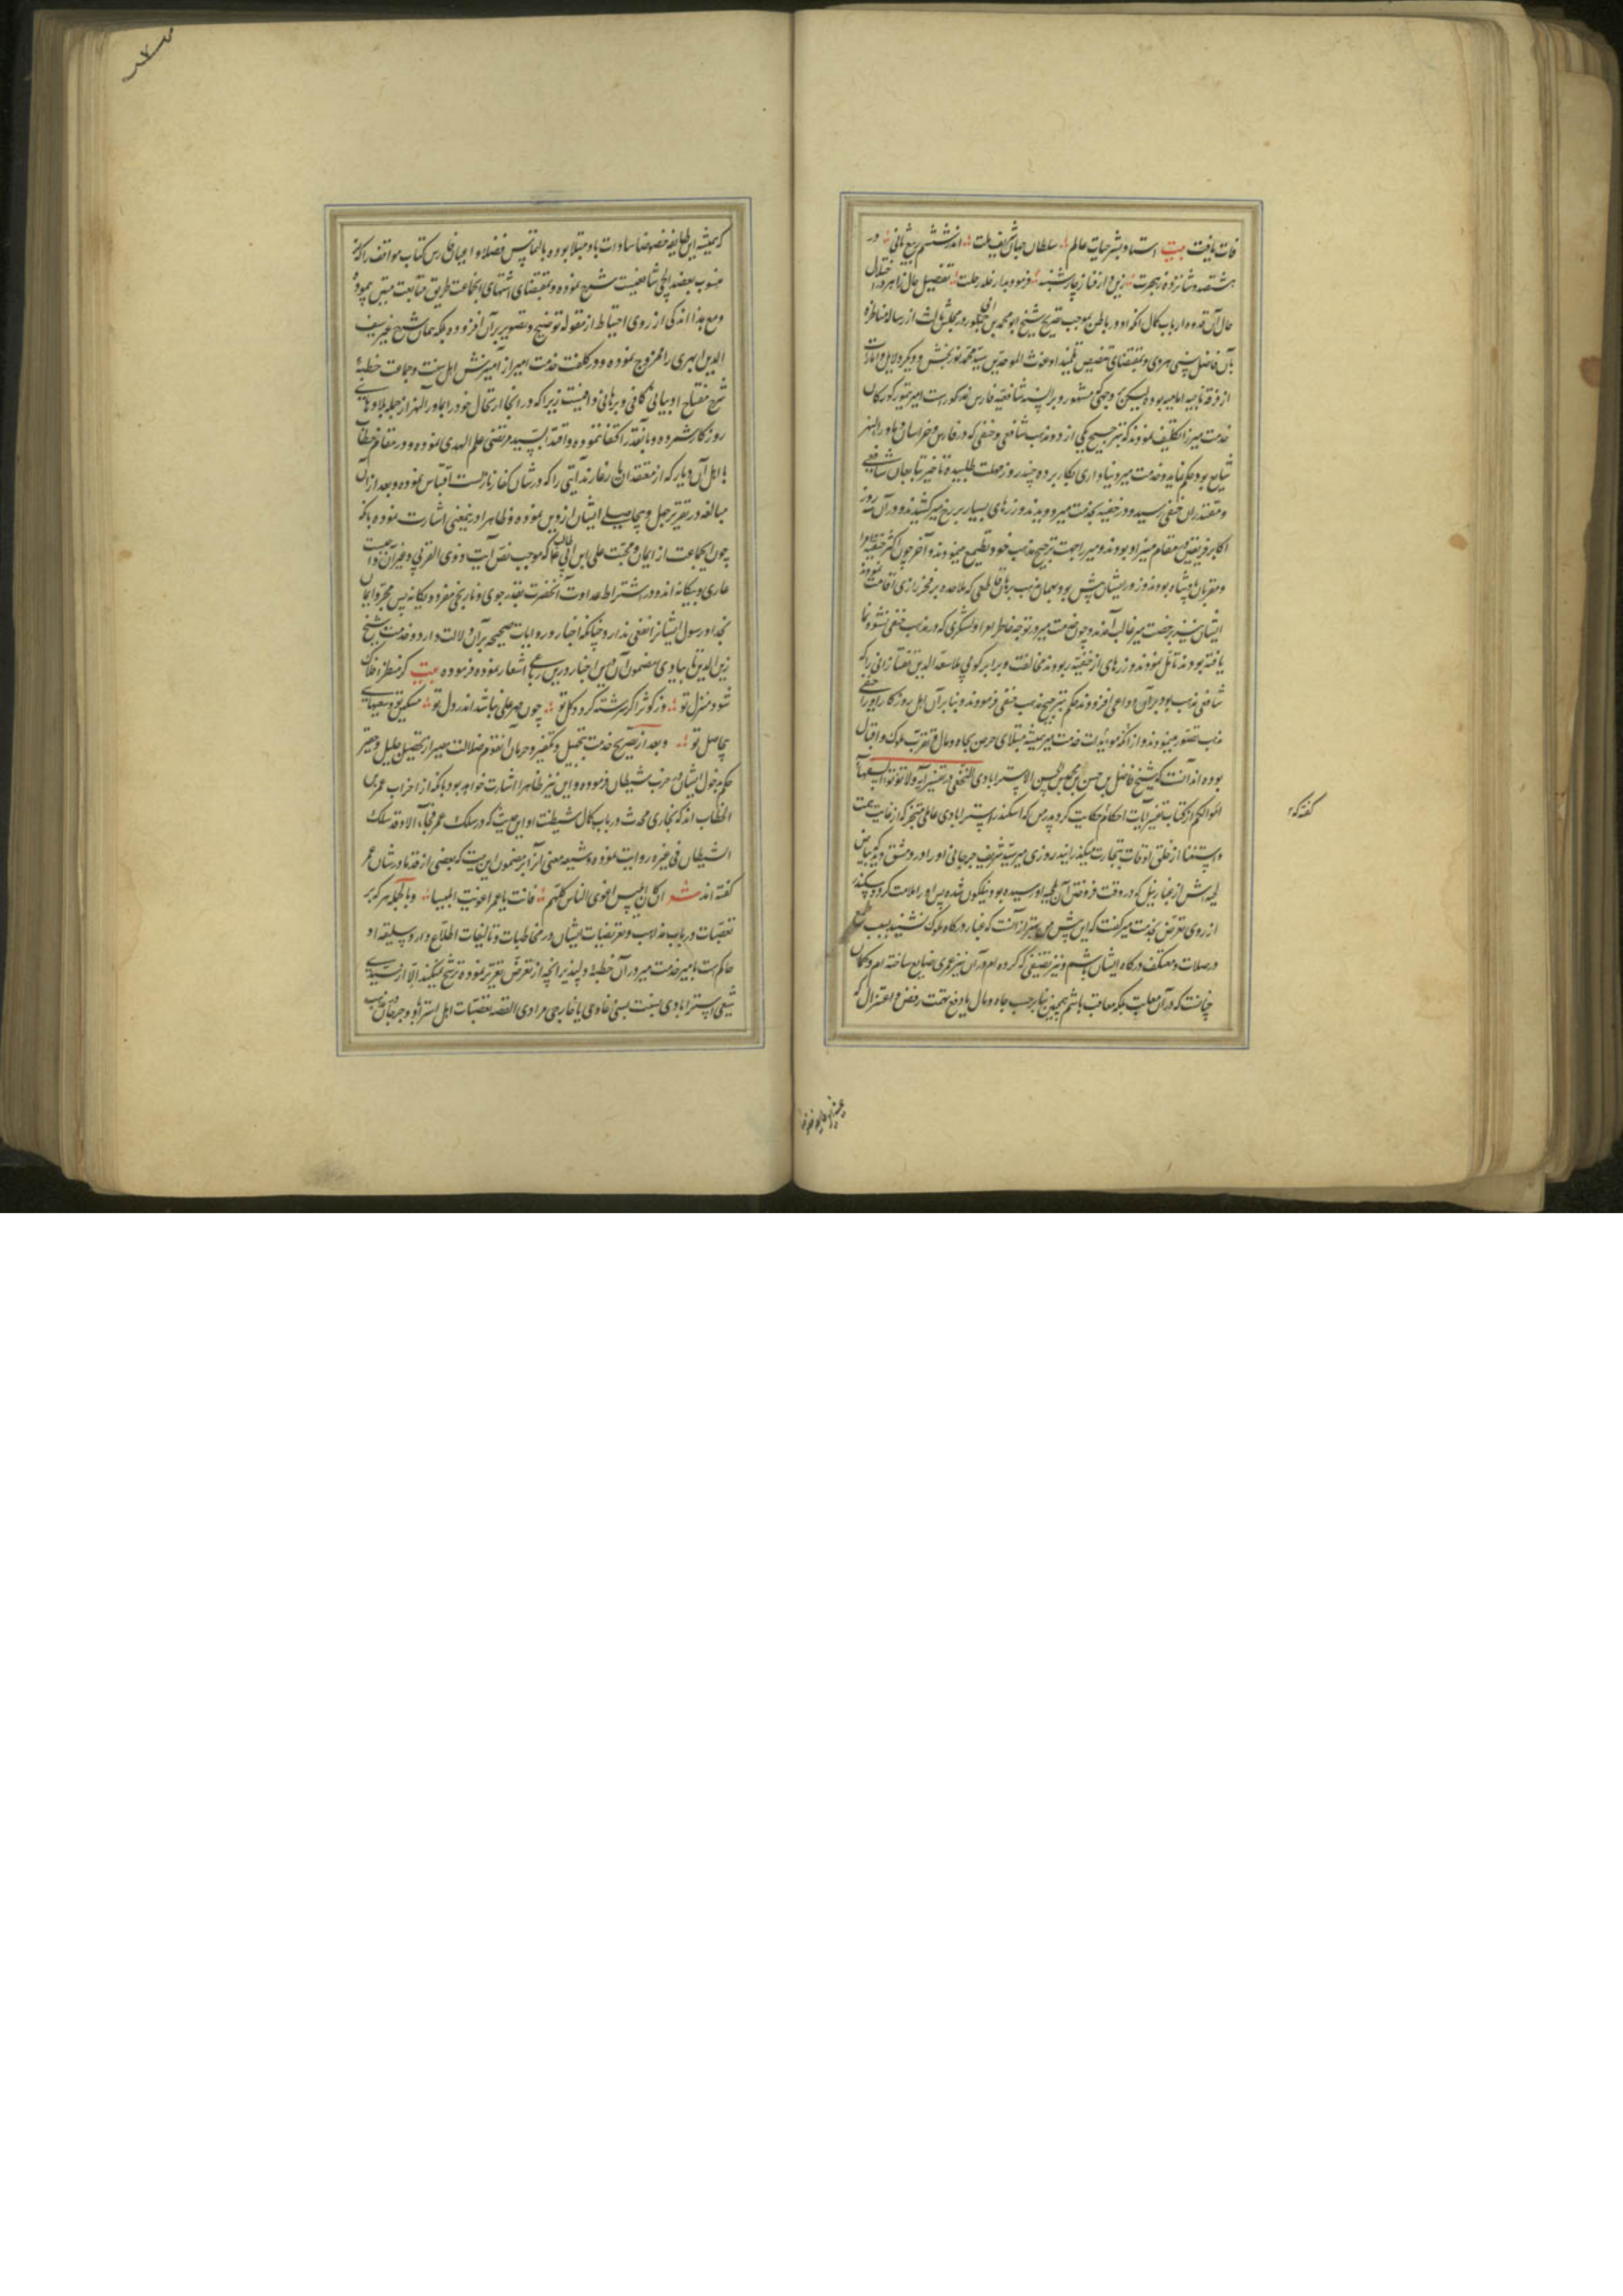 فات یافت بیت استاد بشر حیات عالم سلطان جهان شریف ملت اندر ششم ربیع ثانی در
هشتصد و شانزده ز هجرت زین دار فنا ز چارشنبه فرمود بدار خلد رحلت تفصیل حال ظاهر و اختلال
حال آن قدوه ارباب کمال آنکه او در باطن بموجب تصریح شیخ ابو محمد بن ابی جمهور در مجلس ثالث از رساله مناظره
بآن فاضل سنی هروی و بمقتضای تنصیص تلمیذ او غوث الموحدین سید محمد نوربخش و دیگر دلایل و امارات
از فرقه ناجیه امامیه بوده لیکن وجهی که مشهور و بر السنه شافعیه فارس مذکورست امیر تیمور کورکان
خدمت میر را تکلیف نمودند که ترجیح یکی از دو مذهب شافعی و حنفی که در فارس و خراسان و ماوراء النهر
شایع بود حکم نماید و خدمت میر دنیاداری بکار برده چند روز مهلت طلبیده تا خبر بتابعان شافعی
و مقتدیان حنفی رسیده در خفیه بخدمت میر دویدند و زرهای بسیار بر رخ میر کشیدند و در آن سه روز
اکابر فریقین در مقام میر او بودند و میر را جهت ترجیح مذهب خود تطمیع مینمودند و آخر چون اکثر حنفیه امرا
و مقربان پادشاه بودند و زور ایشان پیش بود بهمان مذهب برهان قاطعی که ملاحده بر فخر رازی اقامت نمودند
ایشان نیز بر خدمت میر غالب آمدند و چون خدمت میر در توجه خاطر امرا و لشکری که در مذهب حنفی نشو و نما
یافته بودند تامل نمودند و زرهای از حنفیه ربودند مخالفت و برابر کویی ملا سعد الدین تفتازانی را که
شافعی مذهب بود بر آن دواعی افزودند حکم بترجیح مذهب حنفی فرمودند و بنابر آن اهل روزکار او را حنفی
مذهب تصور مینمودند و از آنکه مویدات خدمت میر همیشه مبتلای حرص بجاه و مال و تقرب ملوک و اقبال
بوده اند آنست که شیخ فاضل بن حسن بن محمد بن الحسن الاسترابادی النجفی در تفسیر آیه ولا تؤتوا السفهاء
اموالکم از کتاب تفسیر آیات احکام حکایت کرد پدرش که اسکندر استرابادی عاملی متبحر که از غایت همت
و استغنا از خلق اوقات بتجارت میکذرانید روزی میر سید شریف جرجانی او را در دمشق دید که بیاض
لحیه اش از غبار نیل که در وقت فروختن آن بلحیه او رسیده بود نیلکون شده پس او را ملامت کرد و اسکندر
از روی تعرض بخدمت میر گفت که این ریش من بهتر از آنست که غبار درکاه ملوک نشیند بسبب طمع
در صلات و معتکف درکاه ایشان باشم و نیز تصنیفی که کرده ام در آن نیز عمری ضایع ساخته ام و کمان
چنانست که در آن معاتب بلکه معاقب باشم همچنین بنابر حب جاه و مال یا دفع تهمت رفض و اعتزال که
گفته که
که همیشه این طایفه خصوصا سادات باو مبتلا بوده بالتماس فضلا و اعیان فارس کتاب مواقف را که
منسوب بعضد ایجی شافعیست شرح نموده و بمقتضای اشتهای انجماعت طریق متابعت متن پیموده
و مع هذا اندکی از روی احتیاط از مقوله توضیح و تصویر بر آن افزوده بلکه همان شرح غیر سیف
الدین ابهری را ممزوج نموده و در کلفت خدمت امیر از آمیزش اهل سنت و جماعت خطبه
شرح مفتاح او بیانی کافی و برهانی وافیست زیرا که در انجا ارتحال خود را بماوراء النهر از جمله بلاوهای
روزگار شمرده و باینقدر اکتفا ننموده و اقتدا بسید مرتضی علم الهدی نموده و در مقام خطاب
با اهل آن دیار که از معتقدان یار غارند آیتی را که در شان کفار نازلست اقتباس نموده و بعد از آن
مبالغه در تقریر جهل و بیحاصلی ایشان از دین نموده و ظاهرا در بنمعنی اشارت نموده بانکه
چون انجماعت از ایمان و محبت علی ابن ابی طالب که بموجب نص آیت ذوی القربی و غیر آن واجبست
عاری و بیکانه اند و در اشتراط عداوت آنحضرت بقدر جوی و نارنجی منفرد و یکانه پس مجرد ایمان
بخدا و رسول ایشانرا نفعی ندارد چنانکه اخبار و روایات صحیحه بر آن دلالت دارد و خدمت شیخ
زین الدین تایبادی مضمون آن این اخبار در این رباعی اشعار نموده فرموده بیت گر منظر افلاک
شود منزل تو وز کوثر اگر سرشته گردد گل تو چون مهر علی نباشد اندر دل تو مسکین تو و سعیهای
بیحاصل تو و بعد از تصریح خدمت بتجهیل و تکفیر و حرمان انقوم ضلالت مصیر از تحصیل جلیل و حقیر
حکم بدخول ایشان در حزب شیطان فرموده و این نیز ظاهرا اشارت خواهد بود بانکه از احزاب عمر بن
الخطاب اند که بخاری محدث در باب کمال شیطنت او این حدیث که در سلک عمر فجا الا و قد سلک
الشیطان فی غیره روایت نموده و شیعه معنی آنرا بر مضمون این بیت که بعضی از قدما در شان عمر
گفته اند شعر ان کان ابلیس اغوی الناس کلهم فانت یا عمر اغویت ابلیسا و بالجمله هر که بر
تعصبات در باب مذاهب و تعریضات ایشان در مخاطبات و تالیفات اطلاع دارد و سلیقه او
حاکم است بانکه خدمت میر در آن خطبه دلپذیر انچه از تعرض تقریر نموده ترشح نمیکند الا از سیدی
شیعی استرابادی نسبت بسنی غاوی یا خارجی مرادی القصه تعصبات اهل استراباد و جرجان در مذهب